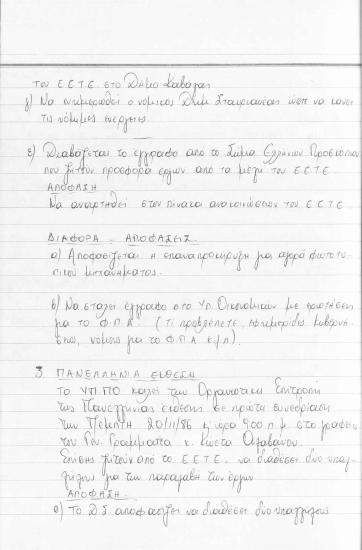 του Ε.Ε.Τ.Ε. στο Δήμο Καβάλας
γ) Να ενημερωθεί ο νομικός Δημ. ώστε να κάνει
τις νόμιμες ενέργειες
ε) Διαβάζεται το έγγραφο από το Σώμα Ελλήνων Προσκόπων
που ζητούν προσφορά έργων από τα μέλη του Ε.Ε.Τ.Ε
ΑΠΟΦΑΣΗ
Να αναρτηθεί στον πίνακα ανακοινώσεων του Ε.Ε.Τ.Ε
ΔΙΑΦΟΡΑ - ΑΠΟΦΑΣΕΙΣ
α) Αποφασίζεται η επαναπροκύρηξη για αγορά φωτοτυ-
πικού μηχανήματος.
β) Να σταλεί έγγραφο στο Υπ. Οικονομικών με ερωτήσεις
για το Φ.Π.Α. (τι προβλέπετε, εφημερίδα κυβερνή-
σεως, νόμος για το Φ.Π.Α κ.λ.π).
3. ΠΑΝΕΛΛΗΝΙΑ ΕΚΘΕΣΗ
Το ΥΠ.ΠΟ καλεί την Οργανωτική Επιτροπή
της Πανελλήνιας έκθεσης σε πρώτη συνεδρίαση
την Πέμπτη 20/11/86 η ώρα 9.00 π.μ. στο γραφείο
του Γεν. Γραμματέα κ. Κώστα Αλαβάνου.
Επίσης ζητούν από το Ε.Ε.Τ.Ε. να διαθέσει δύο υπαλ-
λήλους για την παραλαβή των έργων
ΑΠΟΦΑΣΗ.
α) Το Δ.Σ. αποφασίζει να διαθέσει δύο υπαλλήλους